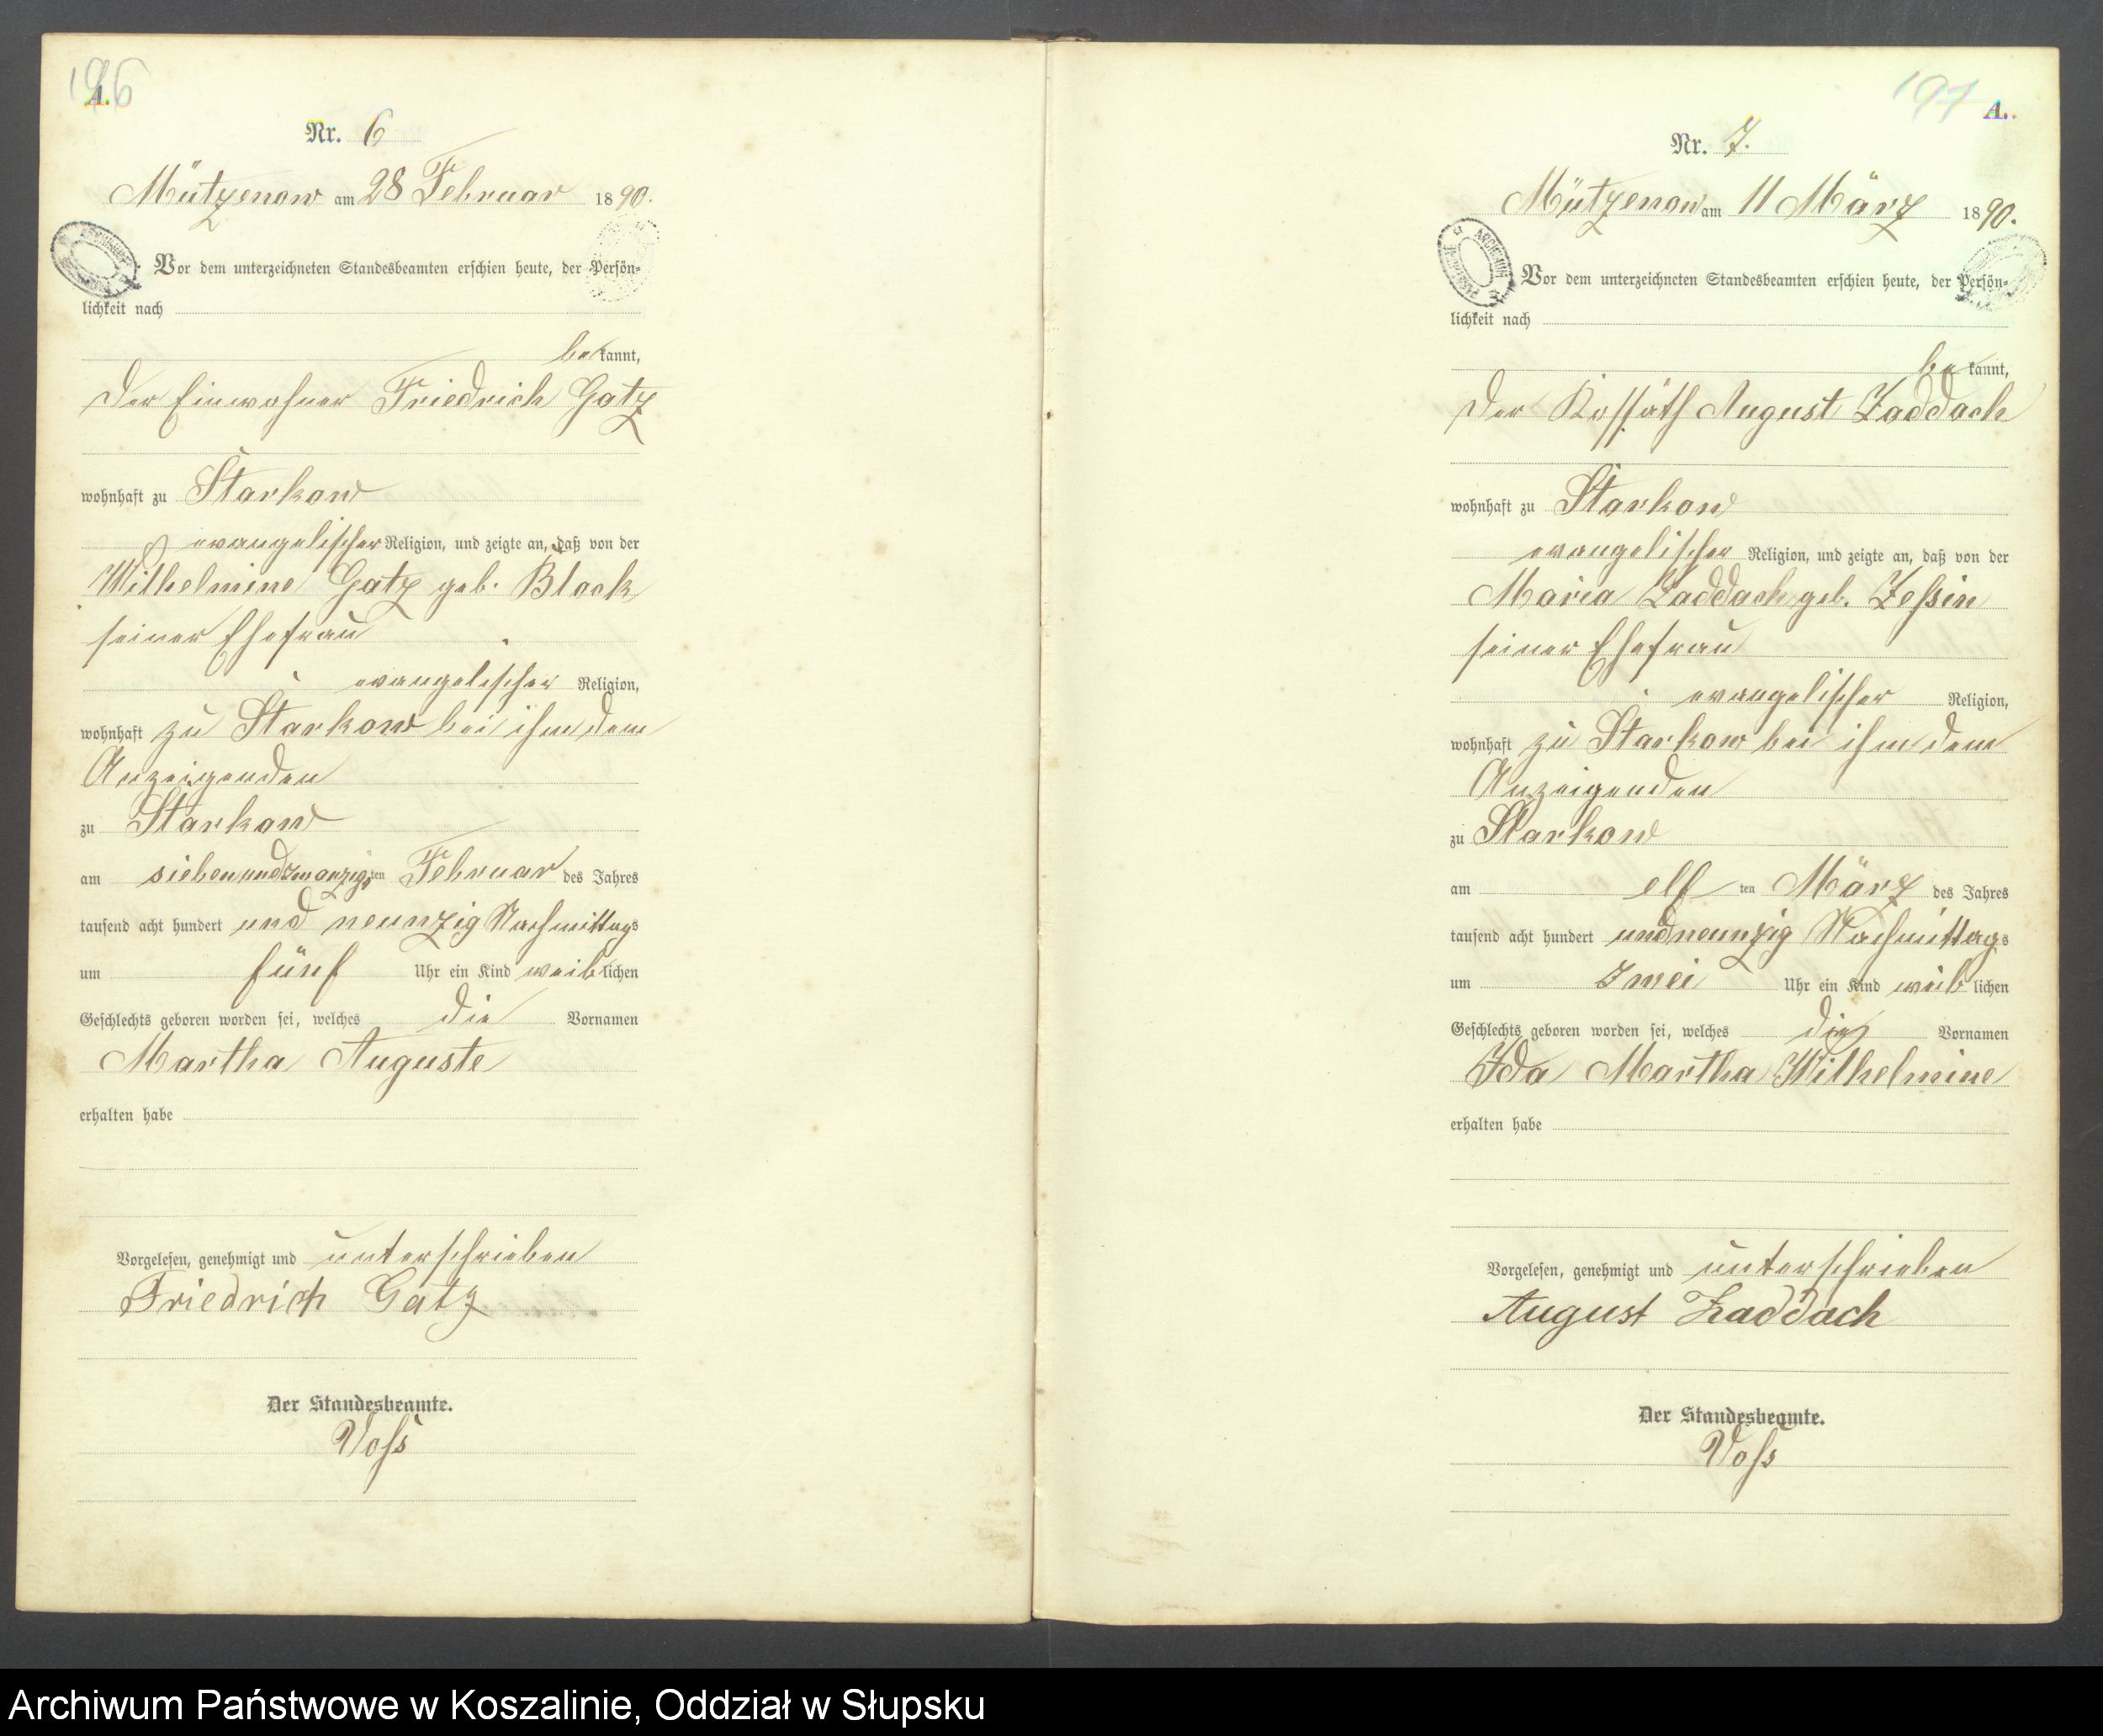 196
A.
Nr. 6
Mützenow am 28 Februar 1890.
Vor dem unterzeichneten Standesbeamten erschien heute, der Persön-
lichkeit nach
bekannt,
der Einwohner Friedrich Gatz
wohnhaft zu Starkow
evangelischer Religion, und zeigte an, daß von der
Wilhelmine Gatz geb. Block
seiner Ehefrau
evangelischer Religion,
wohnhaft zu Starkow bei ihm dem
Anzeigenden
zu Starkow
am siebenundzwanzigsten Februar des Jahres
tausend acht hundert und neunzig Nachmittags
um fünf Uhr ein Kind weiblichen
Geschlechts geboren worden sei, welches die Vornamen
Martha Auguste
erhalten habe
Vorgelesen, genehmigt und unterschrieben
Friedrich Gatz
Der Standesbeamte.
Voß
197
A.
Nr. 7.
Mützenow am 11 März 1890.
Vor dem unterzeichneten Standesbeamten erschien heute, der Persön-
lichkeit nach
bekannt,
der Kossäth August Zaddach
wohnhaft zu Starkow
evangelischer Religion, und zeigte an, daß von der
Maria Zaddach geb. Zessin
seiner Ehefrau
evangelischer Religion,
wohnhaft zu Starkow bei ihm dem
Anzeigenden
zu Starkow
am elften März des Jahres
tausend acht hundert undneunzig Nachmittags
um zwei Uhr ein Kind weiblichen
Geschlechts geboren worden sei, welches die Vornamen
Ida Martha Wilhelmine
erhalten habe
Vorgelesen, genehmigt und unterschrieben
August Zaddach
Der Standesbeamte.
Voß
Archiwum Państwowe w Koszalinie, Oddział w Słupsku